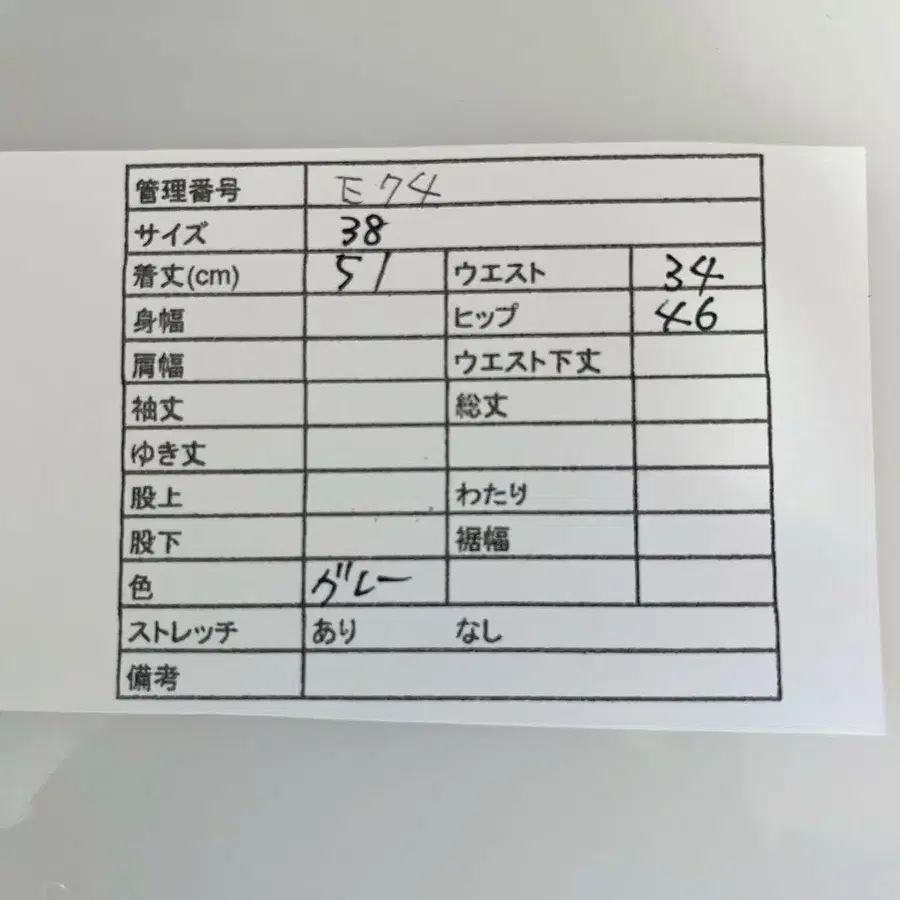 管理番号 E74
サイズ 38
着丈(cm) 51 ウエスト 34
身幅 ヒップ 46
肩幅 ウエスト下丈
袖丈 総丈
ゆき丈
股上 わたり
股下 裾幅
色 グレー
ストレッチ あり なし
備考